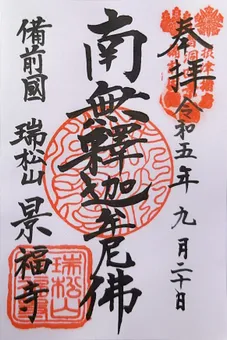 奉拝
令和五年九月二十日
南無釋迦牟尼佛
備前國
瑞松山景福寺
瑞松山